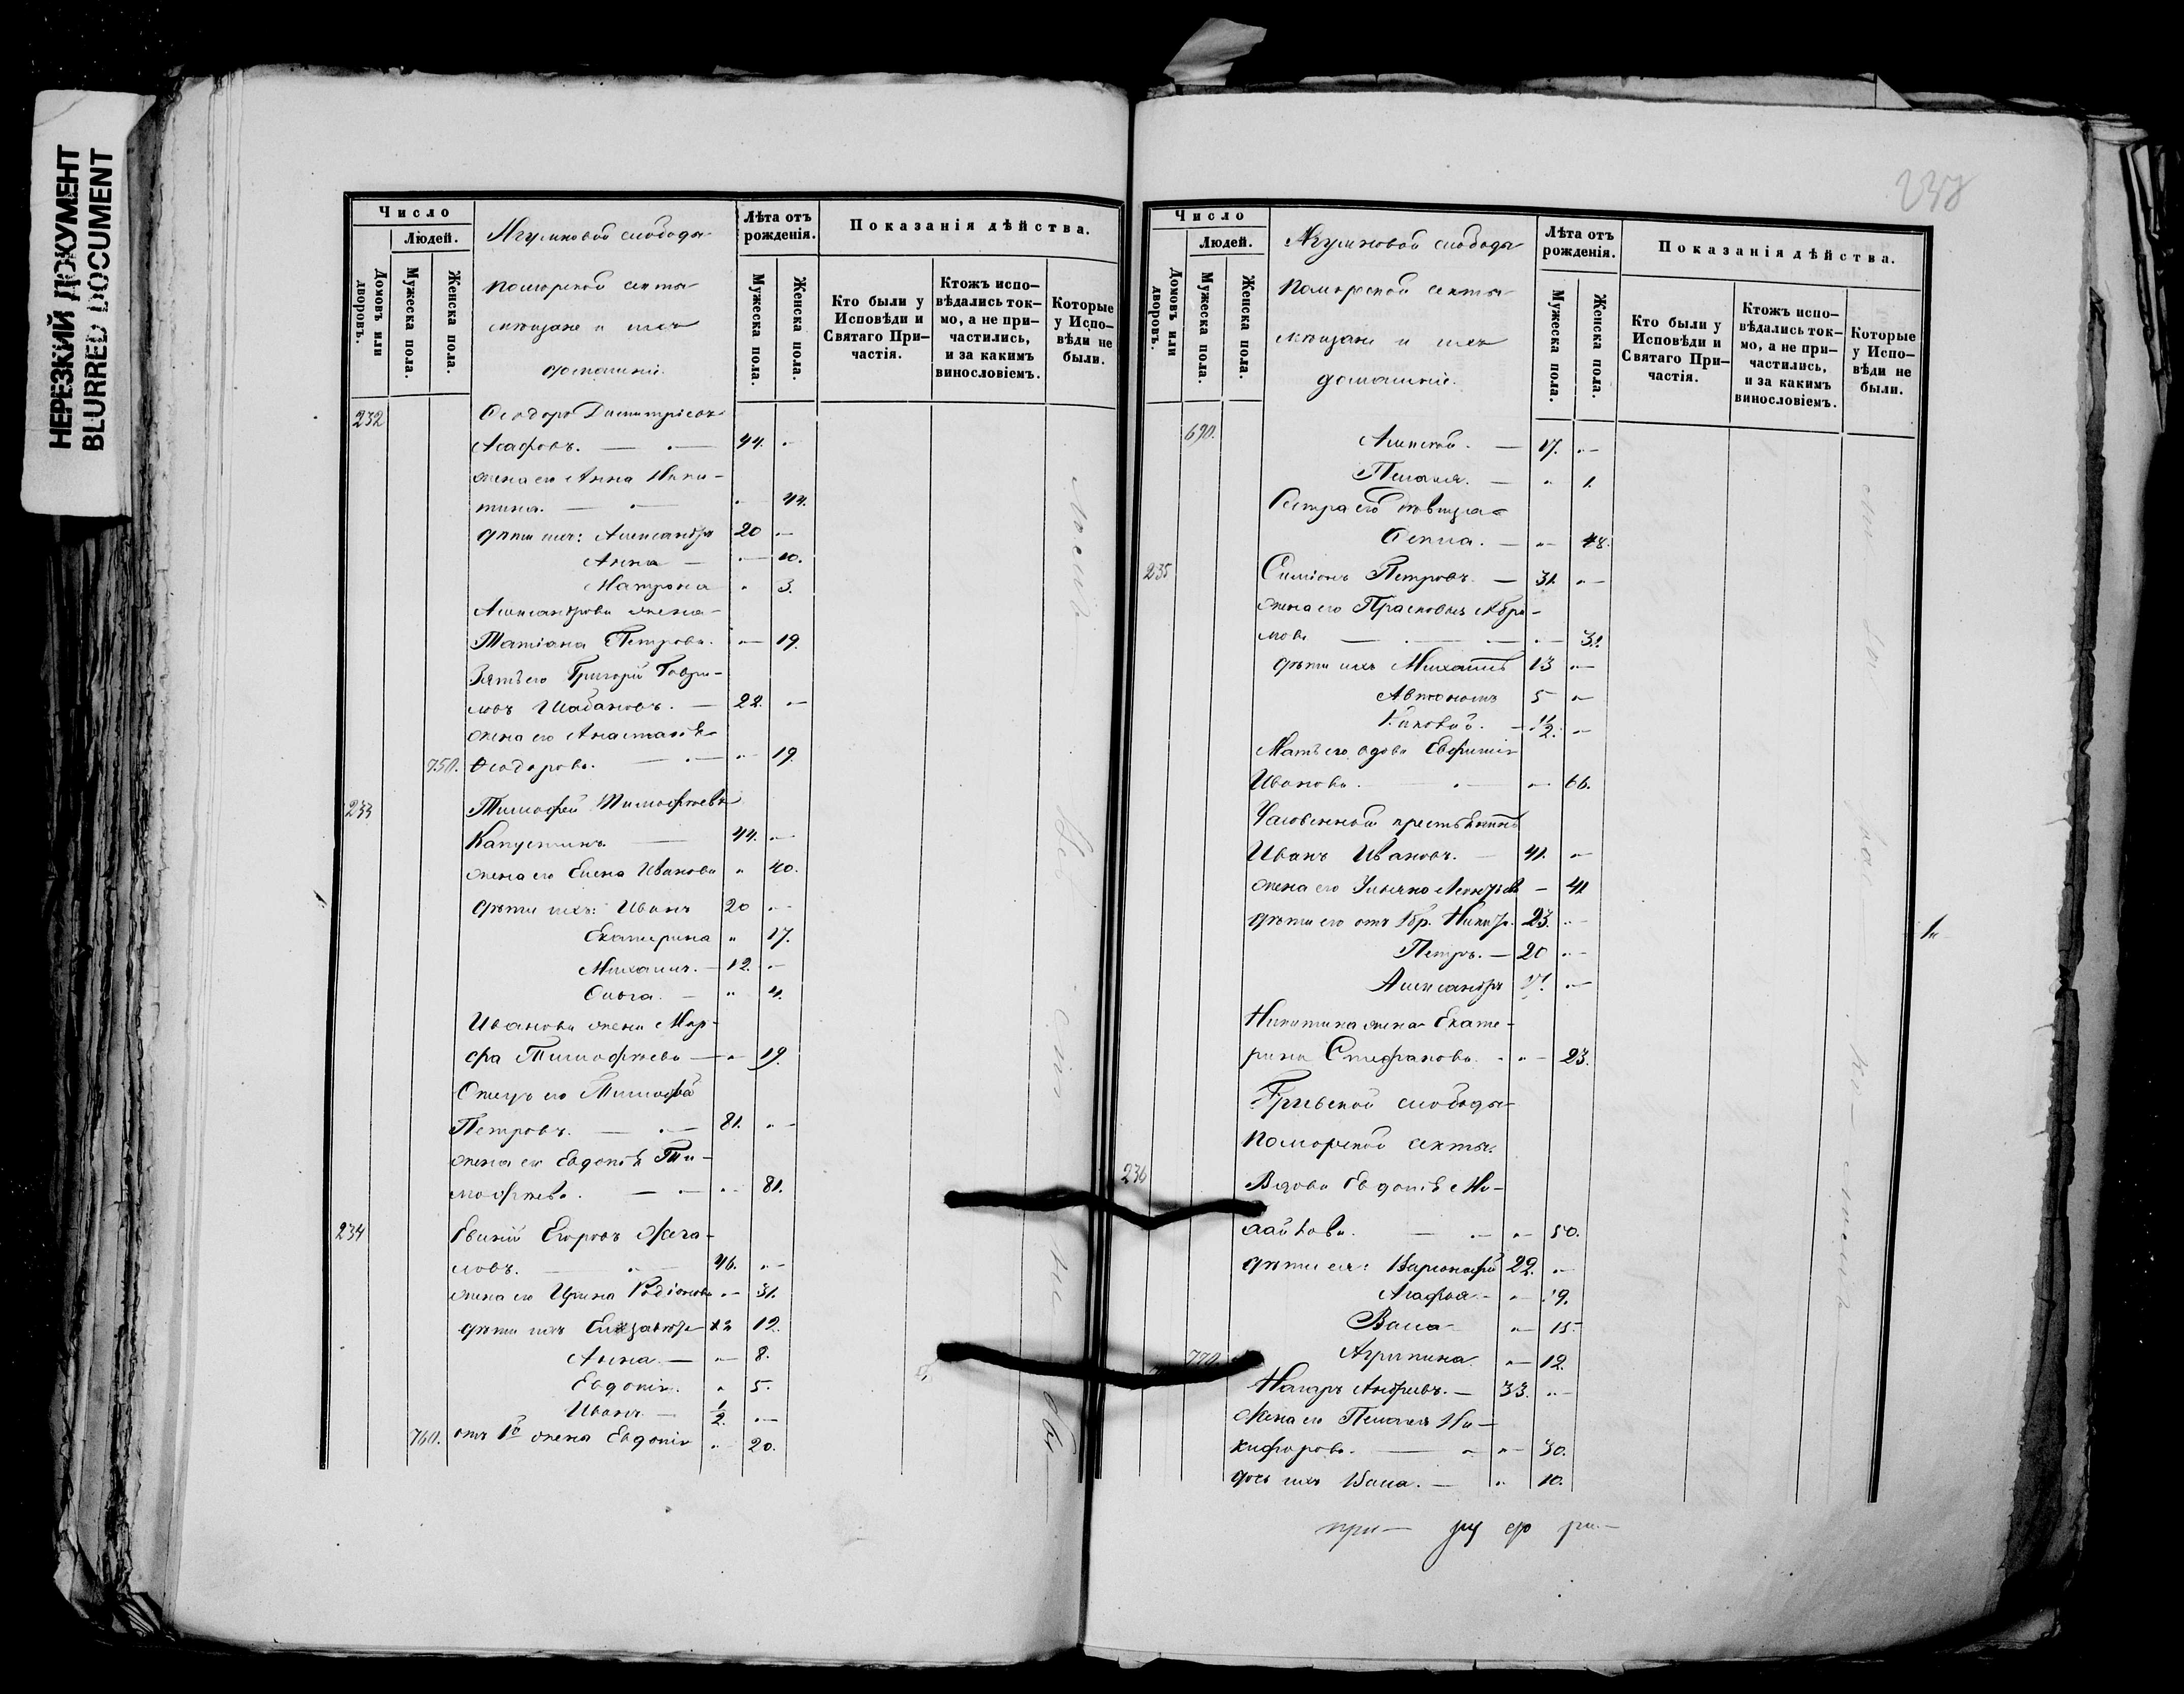 НЕРЕЗКИЙ ДОКУМЕНТ
BLURRED DOCUMENT
Число
Людей.
Домовъ или дворовъ.
Мужеска пола.
Женска пола.
слободы
поморской секты
мѣщане и ихъ
домашніе.
Лѣта отъ рожденія.
Мужеска пола.
Женска пола.
Показанія дѣйства.
Кто были у Исповѣди и Святаго При-
частія.
Ктожъ испо-
вѣдались ток-
мо, а не при-
частились,
и за какимъ
винословіемъ.
Которые
у Испо-
вѣди не
были.
232 Ѳеодоръ Димитріевъ
Агафовъ. — 44. —
жена его Анна Ники-
тина. — 44.
дѣти ихъ: Александръ 20 —
Анна — 10.
Матрона 3.
Александрова жена
Татіана Петрова. — 19.
Зять его Григорій Гаври-
ловъ Шабановъ. — 22. —
жена его Анастасія
750. Ѳеодорова. — 19.
233 Тимофей Тимофѣевъ
Капустинъ. — 44. —
жена его Елена Иванова 40.
дѣти ихъ: Иванъ 20 —
Екатерина 17.
Михаилъ. — 12. —
Ольга. — 4.
Иванова жена Мар-
фа Тимофѣева — 19.
Отецъ его Тимофей
Петровъ. — 81. —
жена его Евдокія Ти-
мофѣева. — 81.
234 Евгеній Егоровъ Жега-
ловъ. — 46. —
жена его Ирина Родіонова — 31.
дѣти ихъ Елизавета 12.
Анна. — 8.
Евдокія. 5.
Иванъ — 1/2. —
760. отъ 1й жена Евдокія 20.
238
Число
Людей.
Домовъ или дворовъ.
Мужеска пола.
Женска пола.
слободы
поморской секты
мѣщане и ихъ
домашніе.
Лѣта отъ рожденія.
Мужеска пола.
Женска пола.
Показанія дѣйства.
Кто были у Исповѣди и Святаго При-
частія.
Ктожъ испо-
вѣдались ток-
мо, а не при-
частились,
и за какимъ
винословіемъ.
Которые
у Испо-
вѣди не
были.
690. Алексѣй. — 17. —
Пелагія. — 1.
Сестра его дѣвица
Ѳекла. — 48.
235 Симеонъ Петровъ. — 31. —
жена его Прасковья Абра-
мова — 31.
дѣти ихъ Михаилъ 13 —
Автономъ 5 —
1/2. —
Мать его вдова Евфимія
Иванова. — 66.
Часовенной крестьянинъ
Иванъ Ивановъ. — 41. —
жена его Ульяна — 41
дѣти его отъ 1 бр. Никита. 23. —
Петръ. — 20 —
Александръ 17. —
Никитина жена Екате-
рина Стефанова. — 23.
Гривской слободы
поморской секты.
236 Вдова Евдокія Ми-
хайлова. — 50.
дѣти ея: Варфоломей 22. —
Агафья — 19.
Васса — 15.
770. Агрипина. — 12.
Назаръ Андреевъ. — 33. —
Жена его Пелагія Ни-
кифорова. — 30.
дочь ихъ Васса. — 10.